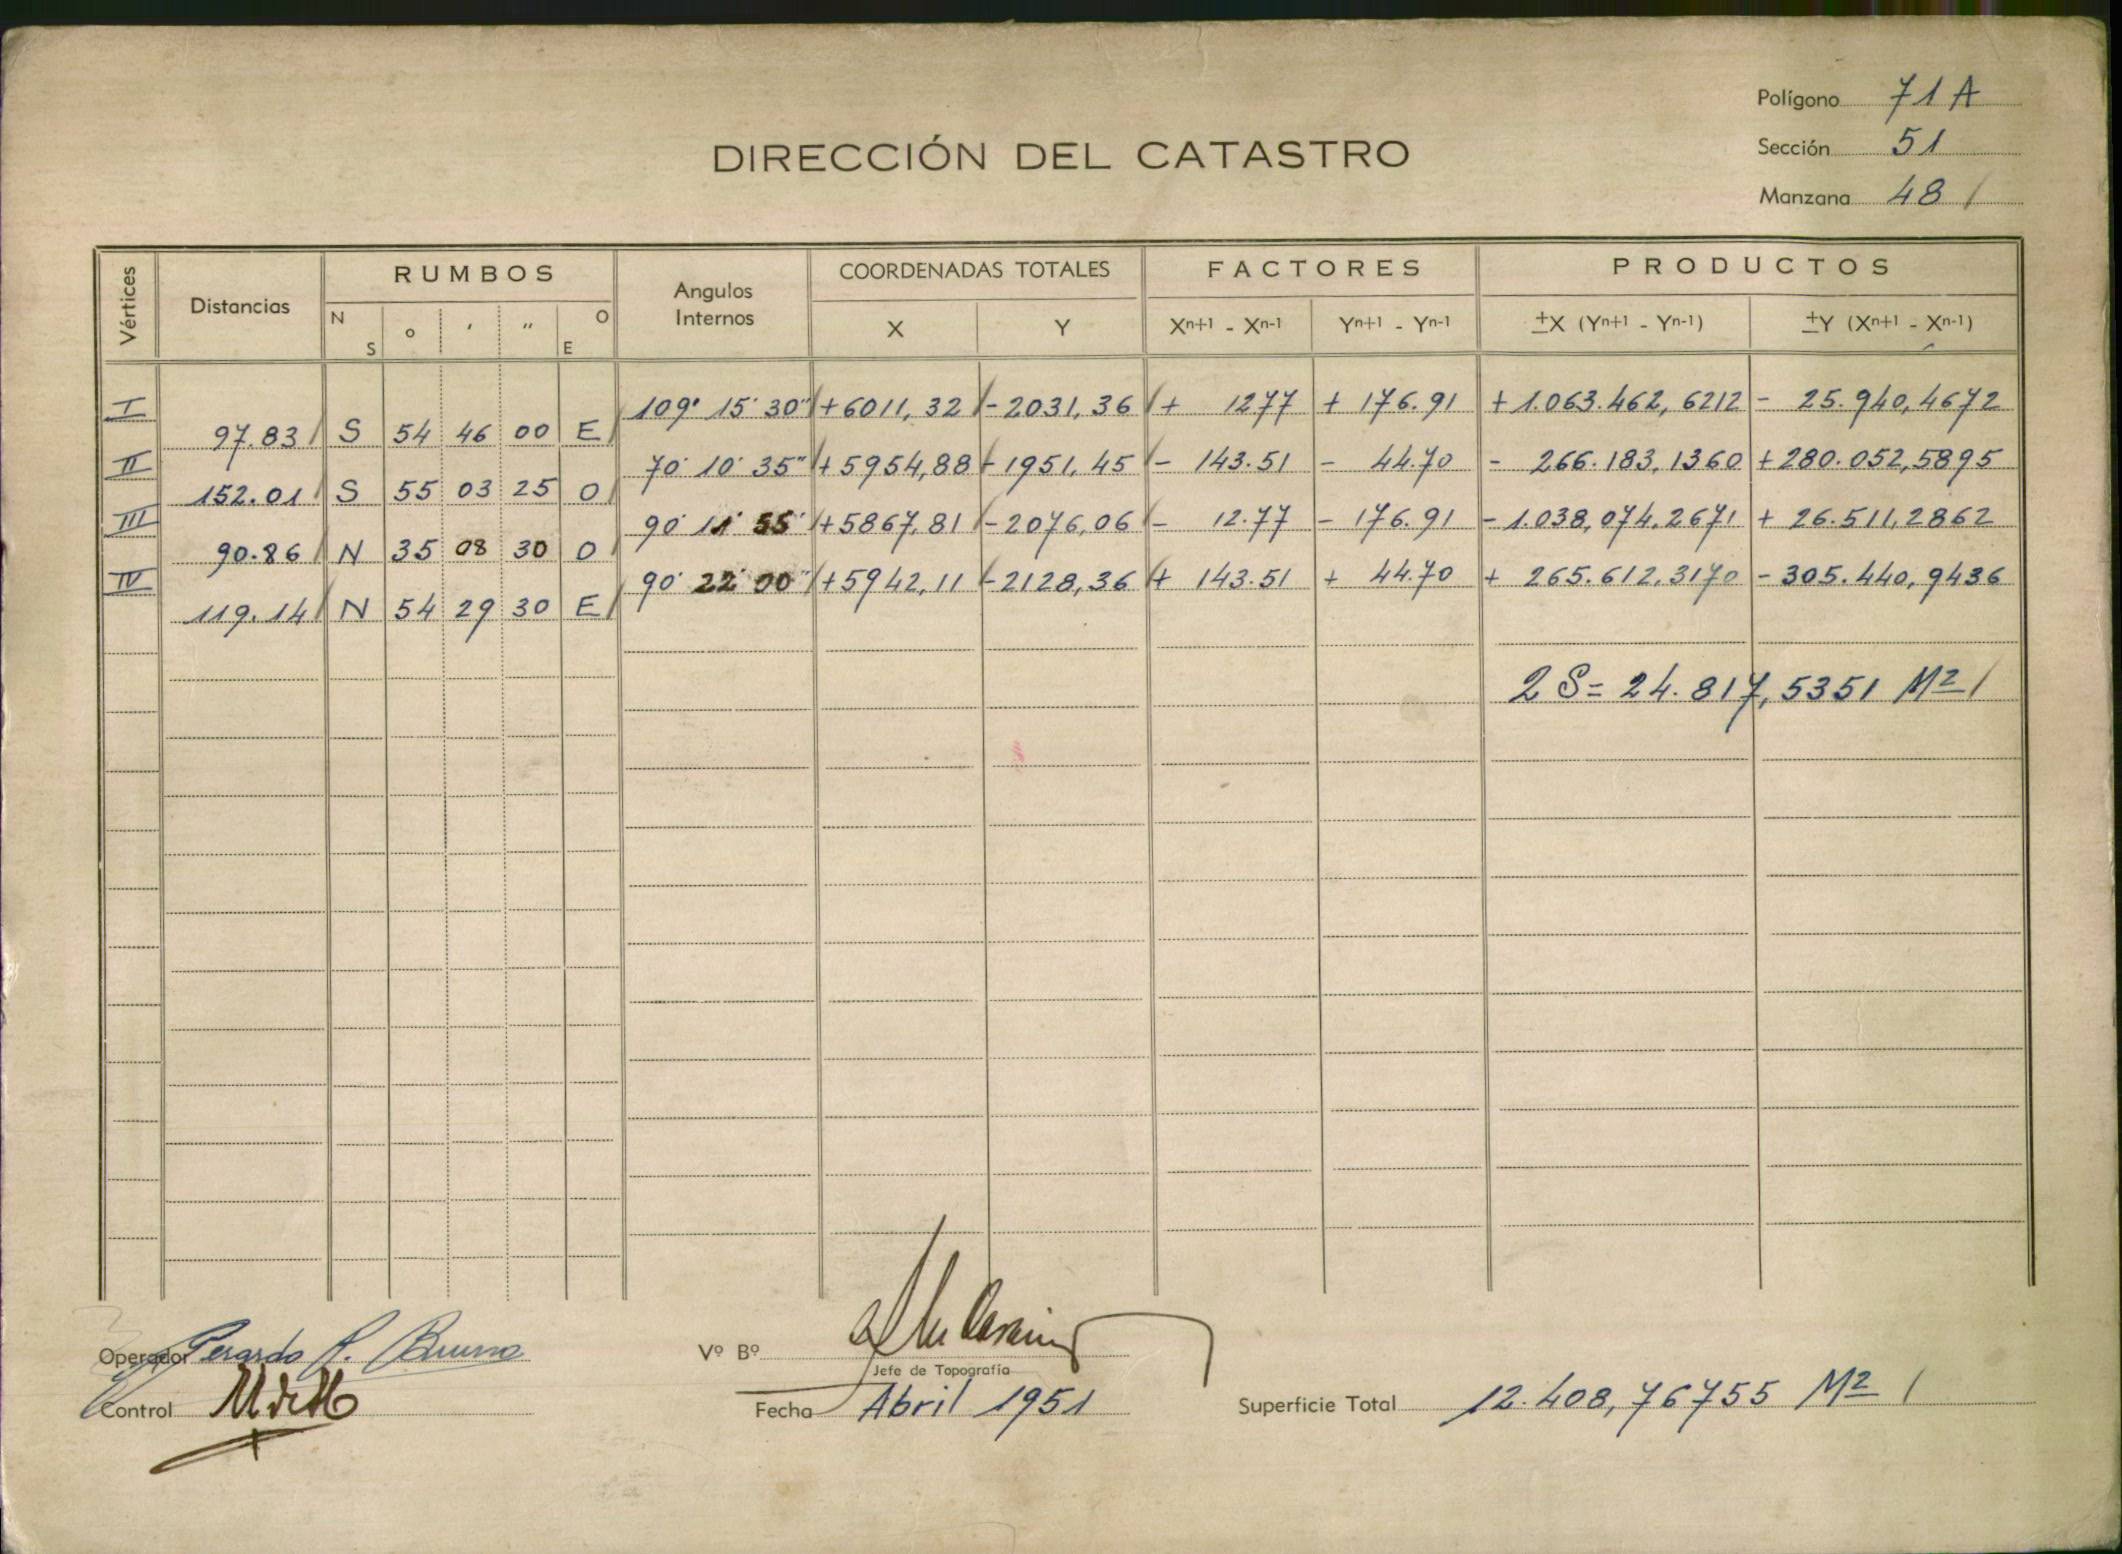 Polígono 71 A
DIRECCIÓN DEL CATASTRO
Sección 51
Manzana 48 /
Vértices Distancias RUMBOS Angulos Internos COORDENADAS TOTALES FACTORES PRODUCTOS
N S o ' " O E X Y Xn+1 - Xn-1 Yn+1 - Yn-1 ±X (Yn+1 - Yn-1) ±Y (Xn+1 - Xn-1)
I 109° 15' 30" +6011,32 -2031,36 + 1277 + 176.91 +1.063.462,6212 - 25.940,4672
97.83 S 54 46 00 E
II 70° 10' 35" +5954,88 -1951,45 - 143.51 - 44.70 - 266.183,1360 +280.052,5895
152.01 S 55 03 25 O
III 90° 11' 55" +5867,81 -2076,06 - 12.77 - 176.91 -1.038,074,2671 + 26.511,2862
90.86 N 35 08 30 O
IV 90° 22' 00" +5942,11 -2128,36 + 143.51 + 44.70 + 265.612,3170 -305.440,9436
119.14 N 54 29 30 E
2 S= 24.817,5351 M2 /
Operador Gerardo P. Bruno
Vº Bº
Jefe de Topografía
Control
Fecha Abril 1951
Superficie Total 12.408,76755 M2 /